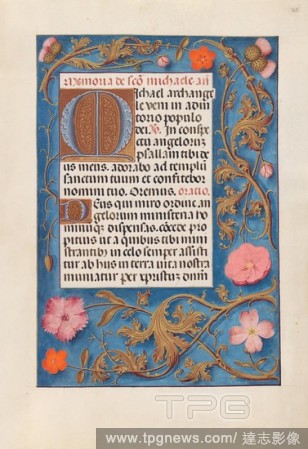 Memoria de sco michaele an
Michael archange
le veni in adiu
torio populo
dei. V. In conspe
ctu angeloru
psallam tibi de
us meus. adorabo ad templu
sanctum tuum et confitebor
nomini tuo. Oremus. oratio.
Deus qui miro ordine an
gelorum ministeria ho
minuq dispensas. cocede pro
pitius ut a quibus tibi mini
strantib in celo semper assisti
tur ab hijs in terra uita nostra
muniatur per xpristum dnm
TPG
www.tpgnews.com/ 達志影像